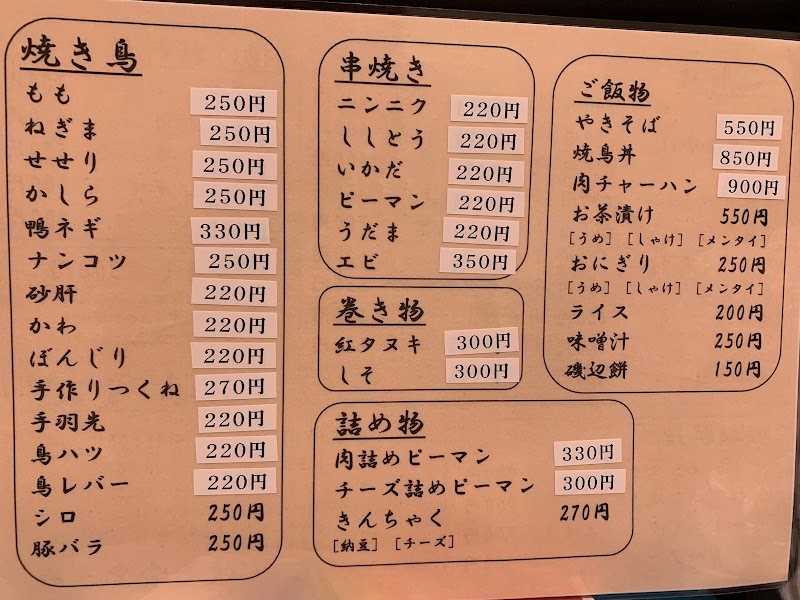 焼き鳥
もも 250円
ねぎま 250円
せせり 250円
かしら 250円
鴨ネギ 330円
ナンコツ 250円
砂肝 220円
かわ 220円
ぼんじり 220円
手作りつくね 270円
手羽先 220円
鳥ハツ 220円
鳥レバー 220円
シロ 250円
豚バラ 250円
串焼き
ニンニク 220円
ししとう 220円
いかだ 220円
ピーマン 220円
うだま 220円
エビ 350円
巻き物
紅タヌキ 300円
しそ 300円
詰め物
肉詰めピーマン 330円
チーズ詰めピーマン 300円
きんちゃく 270円
[納豆] [チーズ]
ご飯物
やきそば 550円
焼鳥丼 850円
肉チャーハン 900円
お茶漬け 550円
[うめ] [しゃけ] [メンタイ]
おにぎり 250円
[うめ] [しゃけ] [メンタイ]
ライス 200円
味噌汁 250円
磯辺餅 150円